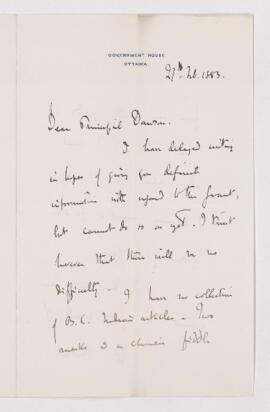 GOVERNMENT HOUSE
OTTAWA.
27th Feb. 1883.
Dear Principal Dawson.
I have delayed writing
in hopes of giving you definite
information with regard to the Grant,
but cannot do so as yet. I trust
however that there will be no
difficulty. I have no collection
of B.C. Indian articles - Two
masks & a chunein fiddle